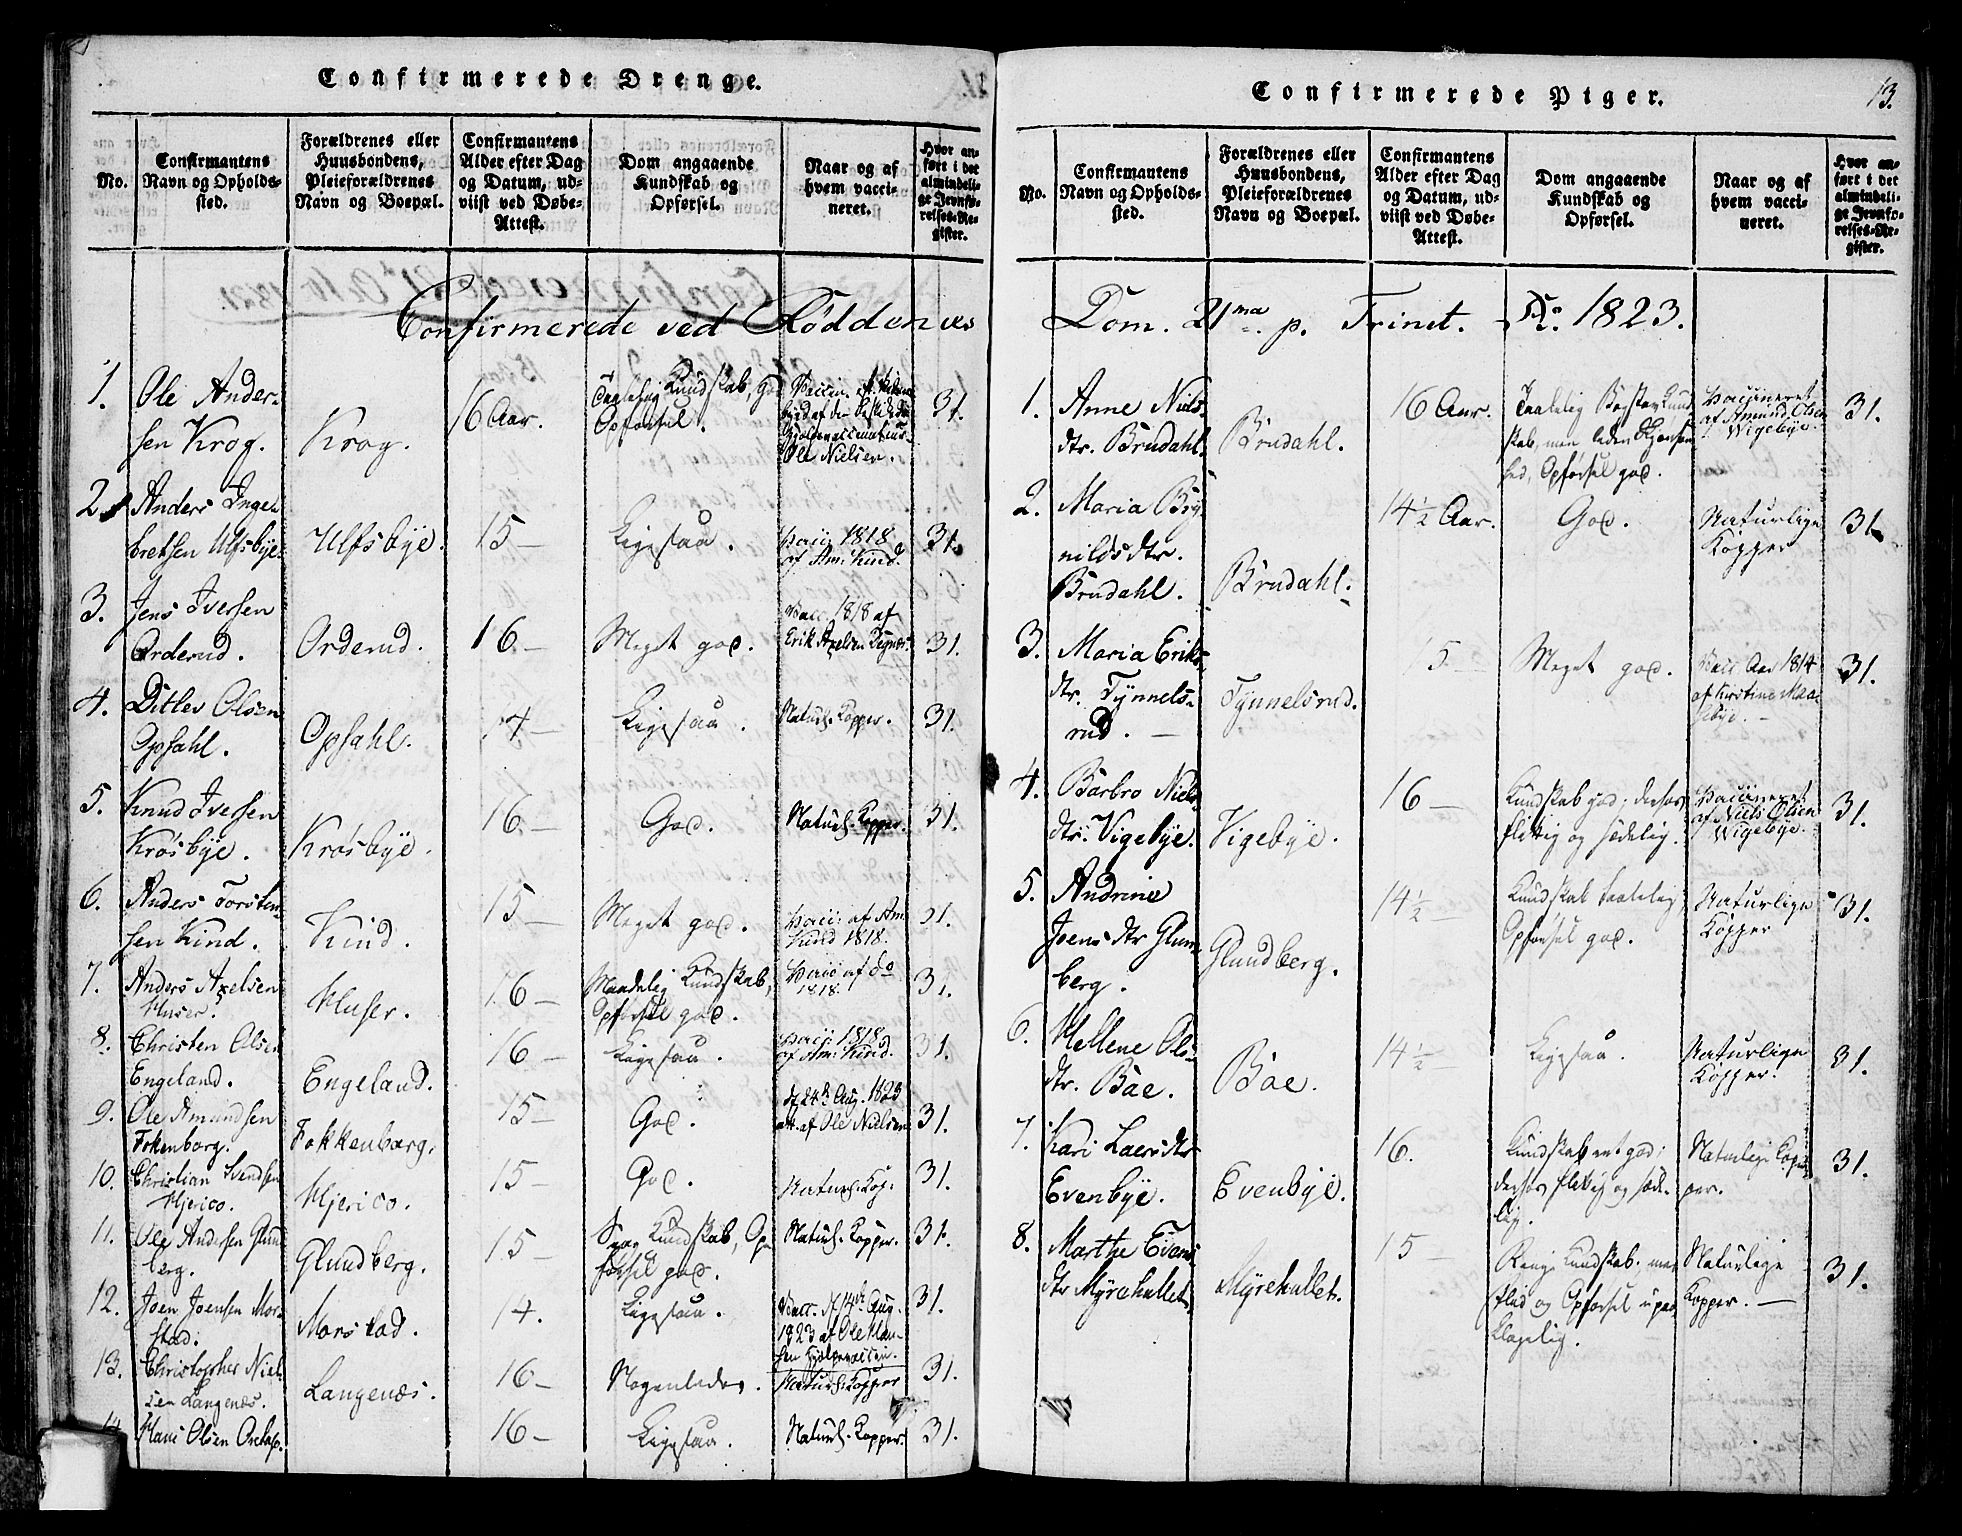 Confirmerede Drenge.
No.
Confirmantens Navn og Opholds-sted.
Forældrenes eller Huusbondens, Pleieforældrenes Navn og Boepæl.
Confirmantens Alder efter Dag og Datum, ud-viist ved Døbe-Attest.
Dom angaaende Kundskab og Opførsel.
Naar og af hvem vacci-neret.
Hvor an-ført i det almindeli-ge Jevnfø-relses-Re-gister.
Confirmerede ved Røddenæs
1. Ole Ander-
sen Krog. Krog. 16 Aar. Taalelig Kundskab, god Opførsel. Ole Nielsen. 31.
2. Anders Inge-
bretsen Ulfsbye. Ulfsbye. 15 — Ligesaa. Vacc: 1818 af Am: Kind. 31.
3. Jens Iversen
Orderud. Orderud. 16 — Meget god. Vacc. 1818 af Erik Axelsen 31.
4. Ditlev Olsen
Opsahl. Opsahl. 14 — Ligesaa. Naturl. Kopper. 31.
5. Knud Iversen
Krósbÿe. Krósbÿe. 16 — God. Naturl. Kopper. 31.
6. Anders Torsten-
sen Kind. Kind. 15 — Meget god. Vacc: af Am. Kind 1818. 31.
7. Anders Axelsen
Huser. Huser. 16 — Maadelig Kundskab, Opførsel god. Vacc af do 1818. 31.
8. Christen Olsen
Engeland. Engeland. 16 — Ligesaa. Vacc 1818 af Am: Kind. 31.
9. Ole Amundsen
Fokenborg. Fokkenborg. 15 — God. d. 24de Aug. 1823 att. af Ole Nielsen 31.
10. Christian Svendsen
Hjerico. Hjerico. 15 — God. Naturl. Kop. 31.
11. Ole Andersen Glund-
berg. Glundberg. 15 — Svag Kundskab, Op-
førsel god. Naturl. Kopper. 31.
12. Joen Joensen Mor-
stad. Morstad. 14. Ligesaa. Vacc. d. 14de Aug. 1823 af Ole Han-
sen 31.
13. Christopher Niel-
sen Langenæs. Langenæs. 16 — Nogenledes. Naturl. Kopper 31.
14. Hans Olsen 16 — Ligesaa. Naturl. Kopper. 31.
Confirmerede Piger.
13.
No.
Confirmantens Navn og Opholds-sted.
Forældrenes eller Huusbondens, Pleieforældrenes Navn og Boepæl.
Confirmantens Alder efter Dag og Datum, ud-viist ved Døbe-Attest.
Dom angaaende Kundskab og Opførsel.
Naar og af hvem vacci-neret.
Hvor an-ført i det almindeli-ge Jevnfø-relses-Re-gister.
Dom. 21ma p. Trinit. Ao. 1823.
1. Anne Niels
dtr. Brudahl. Brudahl. 16 Aar. Taalelig Kund-
skab, men Opførsel god. Vaccineret af Amund Olsen Wigebye. 31.
2. Maria Bry-
nildsdtr.
Brudahl. Brudahl. 14½ Aar. God. Naturlige Kopper 31.
3. Maria Eriks
dtr. Tÿnnels-
rud. — Tÿnnelsrud. 15 — Meget god. Vacc. Aar 1814 af Kirstine 31.
4. Barbro Niels
dtr. Vigebÿe. Vigebÿe. 16 — Kundskab god; flittig og sædelig. Vaccineret af Niels Olsen Wigebye. 31.
5. Andrine
Joensdtr Glun-
berg. Glundberg. 14½ — Kundskab taalelig, Opførsel god. Naturlige Kopper 31.
6. Hellene Ols-
dtr. Bae. Bae. 14½ — Ligesaa. Naturlige Kopper. 31.
7. Kari Laersdtr
Evenbÿe. Evenbÿe. 16. Kundskab god; flittig og sæde-
lig. Naturlige Kop-
per. 31.
8. Marthe Evens
dtr Mÿrehullet. Mÿrehullet. 15 — Ringe Kundskab, men
Flid og Opførsel upaa-
klagelig. Naturlige Kopper. — 31.